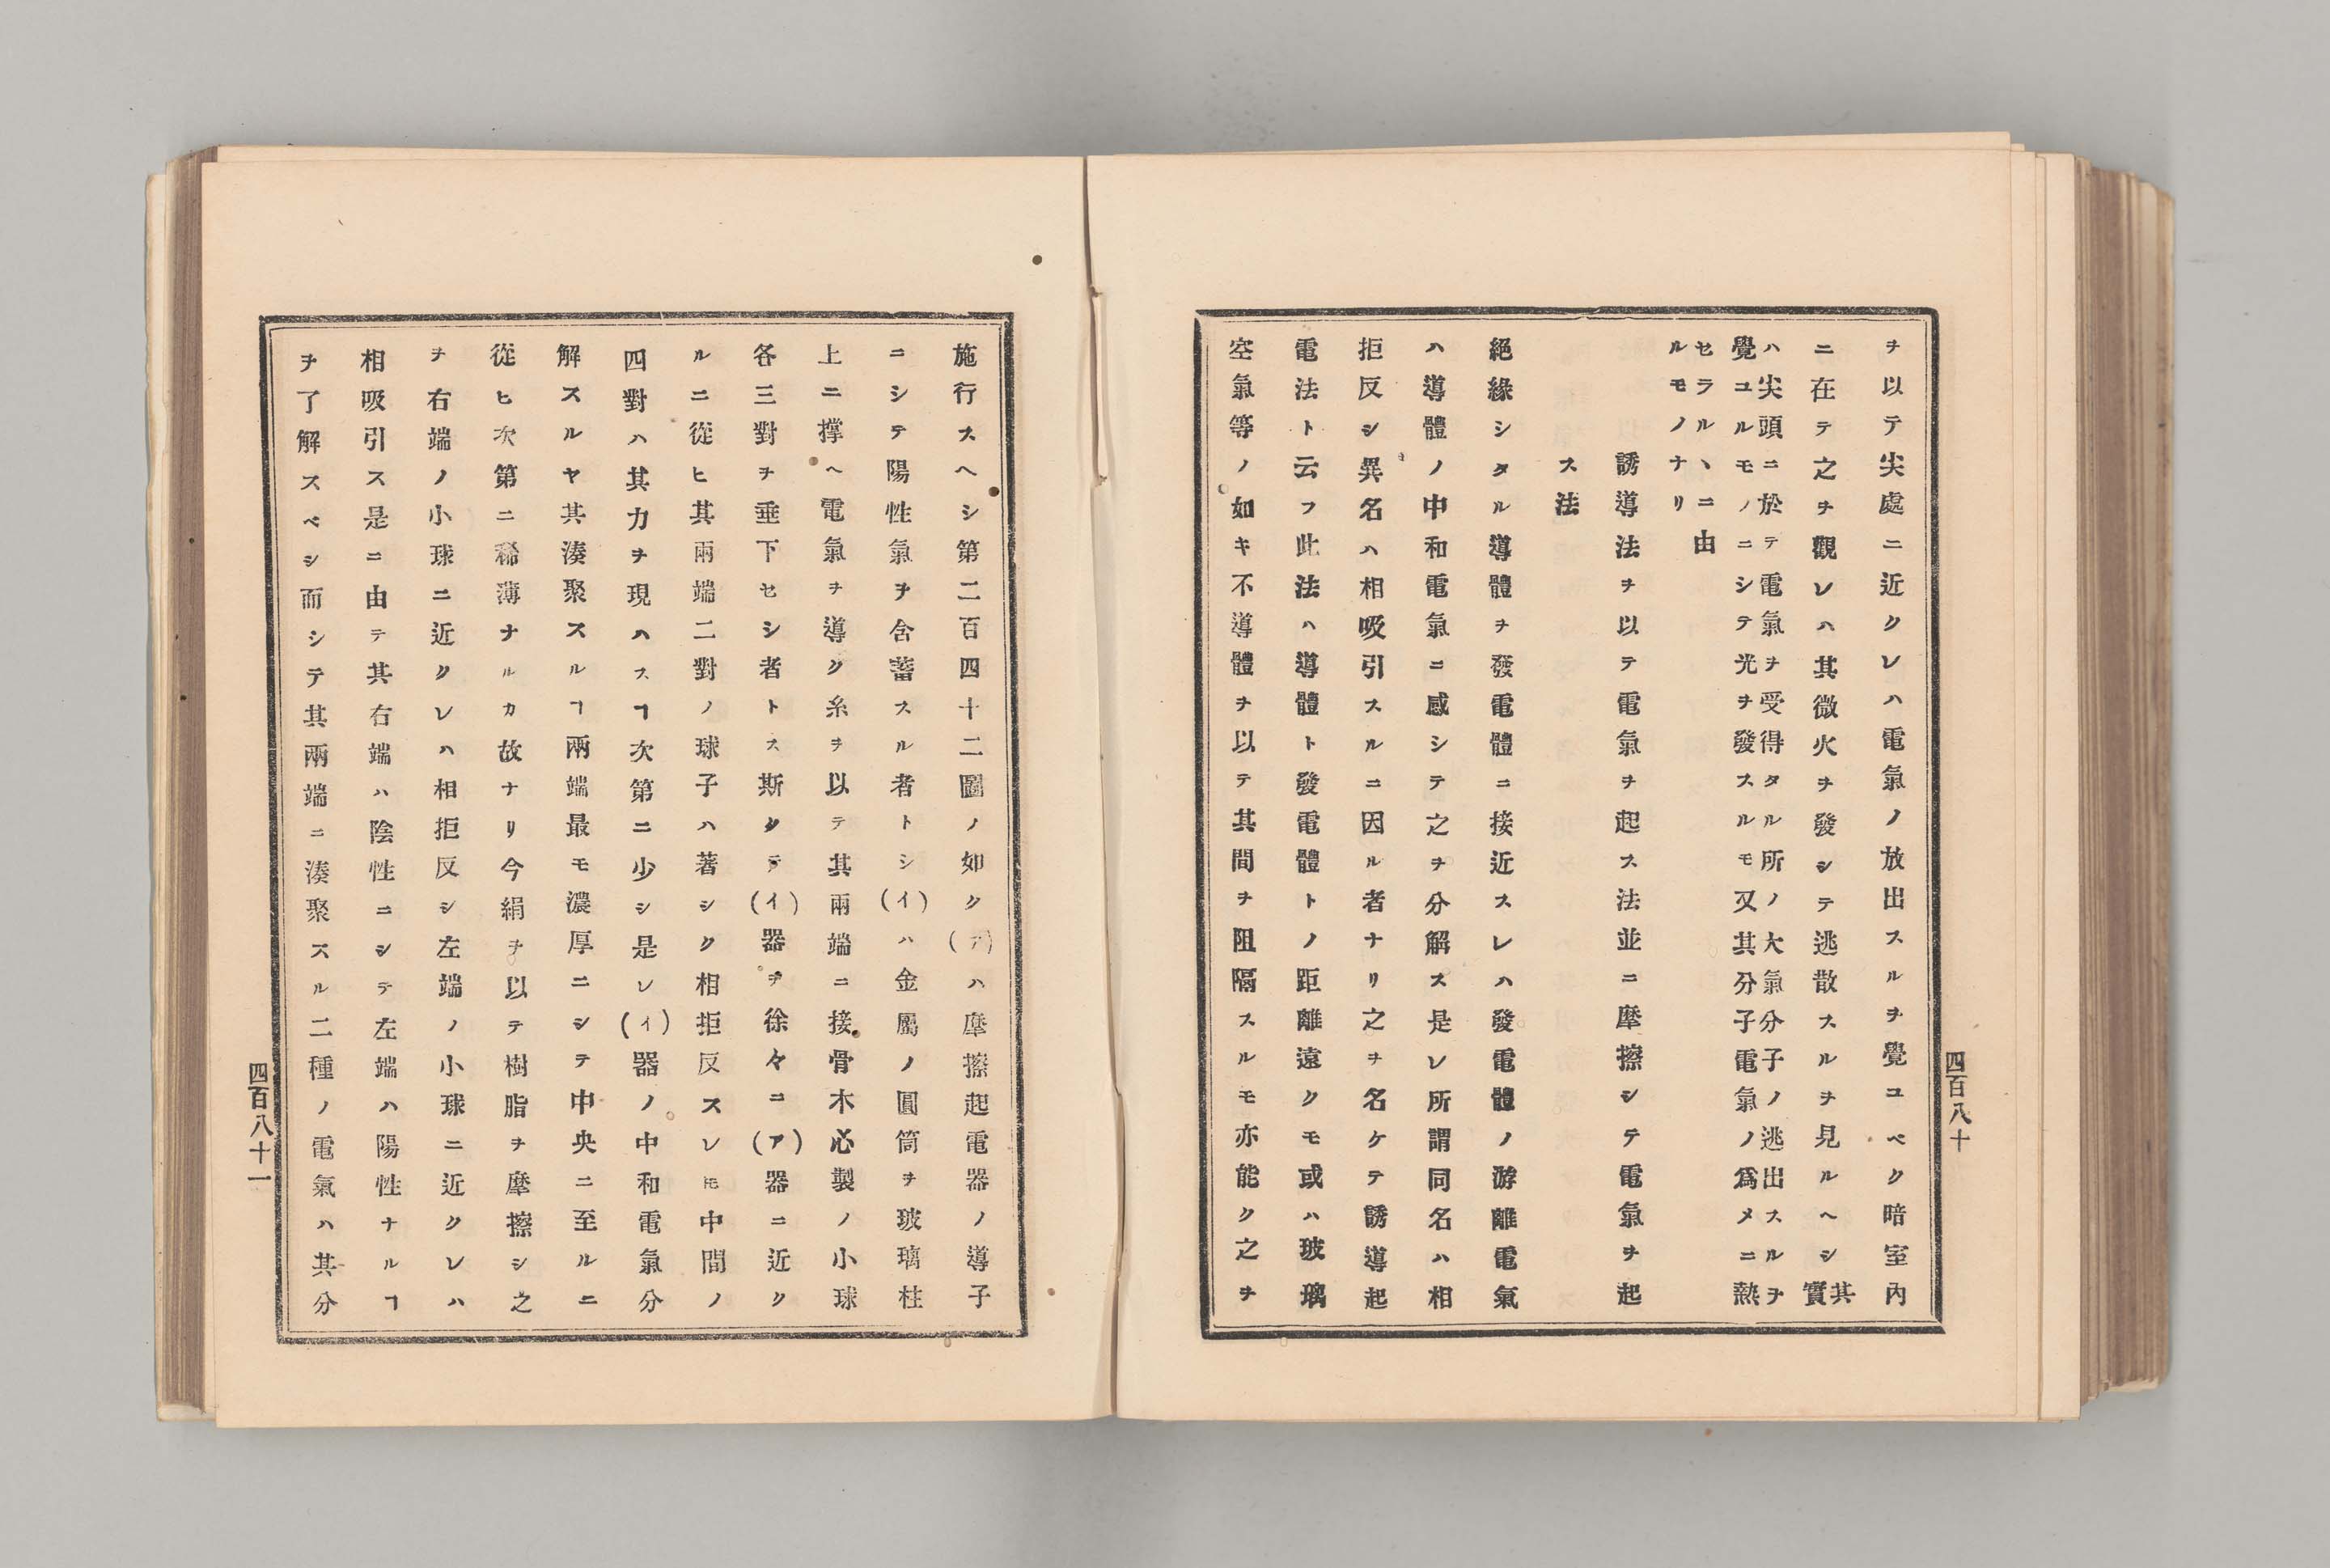 ヲ以テ尖處ニ近クレハ電氣ノ放出スルヲ覺ユベク暗室內
ニ在テ之ヲ觀レハ其微火ヲ發シテ逃散スルヲ見ルヘシ其實
ハ尖頭ニ於テ電氣ヲ受得タル所ノ大氣分子ノ逃出スルヲ
覺ユルモノニシテ光ヲ發スルモ又其分子電氣ノ爲メニ熱
セラルヽニ由
ルモノナリ
誘導法ヲ以テ電氣ヲ起ス法並ニ摩擦シテ電氣ヲ起
ス法
絕緣シタル導體ヲ發電體ニ接近スレハ發電體ノ游離電氣
ハ導體ノ中和電氣ニ感シテ之ヲ分解ス是レ所謂同名ハ相
拒反シ異名ハ相吸引スルニ因ル者ナリ之ヲ名ケテ誘導起
電法ト云フ此法ハ導體ト發電體トノ距離遠クモ或ハ玻璃
空氣等ノ如キ不導體ヲ以テ其間ヲ阻隔スルモ亦能ク之ヲ
四百八十
施行スヘシ第二百四十二圖ノ如ク(ア)ハ摩擦起電器ノ導子
ニシテ陽性氣ヲ含蓄スル者トシ(イ)ハ金屬ノ圓筒ヲ玻璃柱
上ニ撑ヘ電氣ヲ導ク糸ヲ以テ其兩端ニ接骨木心製ノ小球
各三對ヲ垂下セシ者トス斯クテ(イ)器ヲ徐々ニ(ア)器ニ近ク
ルニ從ヒ其兩端二對ノ球子ハ著シク相拒反スレ𪜈中間ノ
四對ハ其力ヲ現ハスヿ次第ニ少シ是レ(イ)器ノ中和電氣分
解スルヤ其湊聚スルヿ兩端最モ濃厚ニシテ中央ニ至ルニ
從ヒ次第ニ稀薄ナルカ故ナリ今絹ヲ以テ樹脂ヲ摩擦シ之
ヲ右端ノ小球ニ近クレハ相拒反シ左端ノ小球ニ近クレハ
相吸引ス是ニ由テ其右端ハ陰性ニシテ左端ハ陽性ナルヿ
ヲ了解スベシ而シテ其兩端ニ湊聚スル二種ノ電氣ハ其分
四百八十一